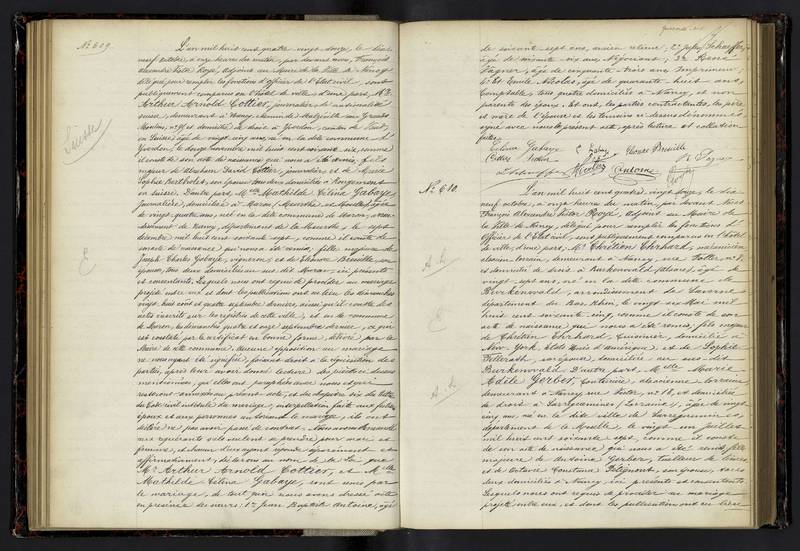 N° 609.
L'an mil huit cent quatre vingt douze, le dix
neuf octobre, à onze heures du matin, par devant nous, François
Alexandre Victor Roze, adjoint au Maire de la Ville de Nancy
délégué pour remplir les fonctions d'Officier de l'Etat civil, sont
publiquement comparus en l'hôtel de ville, d'une part, Mr
Arthur Arnold Cottier, journalier, de nationalité
suisse, demeurant à Nancy, chemin de Malzéville aux Grands
Moulins, et domicilié de droit à Yverdon, canton de Vaud,
en Suisse, âgé de vingt cinq ans, né en la dite commune d'
Yverdon, le douze novembre mil huit cent soixante six, comme
il conste de son acte de naissance qui nous a été remis, fils
majeur de Abraham David Cottier, journalier, et de Marie
Sophie Bertholet, son épouse, tous deux domiciliés à Rougemont
en Suisse. D'autre part, Melle Mathilde Célina Gabaye,
journalière, domiciliée à Maron (Meurthe et Moselle), âgée
de vingt quatre ans, née en la dite commune de Maron, arron-
dissement de Nancy, département de la Meurthe, le sept
décembre mil huit cent soixante sept, comme il conste de
son acte de naissance qui nous a été remis, fille majeure de
Joseph Charles Gabaye, vigneron, et de Eléonore Breuille, son
épouse, tous deux domiciliés au sus dit Maron, ici présents
et consentants. Lesquels nous ont requis de procéder au mariage
projeté entre eux et dont les publications ont eu lieu les dimanches
vingt huit août et quatre septembre dernier, ainsi qu'il conste des
actes inscrits sur les registres de cette ville, et en la commune
de Maron, les dimanches quatre et onze septembre dernier, ce qui
est constaté par le certificat en bonne forme, délivré par le
Maire de cette commune. Aucune opposition au mariage
ne nous ayant été signifiée, faisant droit à la réquisition des
parties, après leur avoir donné lecture des pièces ci-dessus
mentionnées, qu'elles ont paraphées avec nous et qui
resteront annexées au présent acte, et du chapitre six du titre
du Code civil intitulé du mariage, interpellation faite aux futurs
époux et aux personnes autorisant le mariage, ils ont
déclaré ne pas avoir passé de contrat. Nous avons demandé
aux requérants s'ils veulent se prendre pour mari et
femme, et chacun d'eux ayant répondu séparément et
affirmativement, déclarons au nom de la loi que
Mr Arthur Arnold Cottier, et Melle
Mathilde Célina Gabaye, sont unis par
le mariage, de tout quoi nous avons dressé acte
en présence des sieurs: 1° Jean Baptiste Antoine, âgé
de soixante sept ans, ancien relieur; 2° Schaeffer,
âgé de soixante six ans Négociant; 3°
Vagner, âgé de cinquante trois ans Imprimeur,
4° Et Emile Nicolas, âgé de quarante huit ans,
Comptable, tous quatre domiciliés à Nancy, et non
parents des époux. Et ont, les parties contractantes, les père
et mère de l'épouse et les témoins ci dessus dénommés,
signé avec nous le présent acte, après lecture et collation
faites.
Célina Gabaye
Cottier
Gabaye
Breuille
Schaeffer
Nicolas
Antoine
N° 610.
L'an mil huit cent quatre vingt douze, le dix
neuf octobre, à onze heures du matin, par devant Nous
François Alexandre Victor Roze, adjoint au Maire de
la Ville de Nancy, délégué pour remplir les fonctions d'
Officier de l'Etat civil, sont publiquement comparus en l'hôtel
de ville, d'une part, Mr Chrétien Ehrhard, mécanicien
alsacien lorrain, demeurant à Nancy, rue
et domicilié de droit à Burkenwald (Alsace), âgé de
vingt sept ans, né en la dite commune de
Burkenwald, arrondissement de Saverne
département du Bas Rhin, le vingt six Mai mil
huit cent soixante cinq, comme il conste de son
acte de naissance qui nous a été remis, fils majeur
de Chrétien Ehrhard, Cuisinier, domicilié à
New York, Etats Unis d'Amérique, et de Sophie
son épouse, domiciliée au sus dit
Burkenwald. D'autre part, Melle Marie
Adèle Gerber, Couturière, alsacienne lorraine,
demeurant à Nancy, rue n° 18, et domiciliée
de droit à Sarreguemines, Lorraine, âgée de vingt
cinq ans, née en la dite ville de Sarreguemines,
département de la Moselle, le vingt un Juillet
mil huit cent soixante sept, comme il conste
de son acte de naissance qui nous a été remis, fille
majeure de Antoine Gerber, tailleur de limes
et de Octavie Constance son épouse, tous
deux domiciliés à Nancy ici présents et consentants.
Lesquels nous ont requis de procéder au mariage
projeté entre eux, et dont les publications ont eu lieu